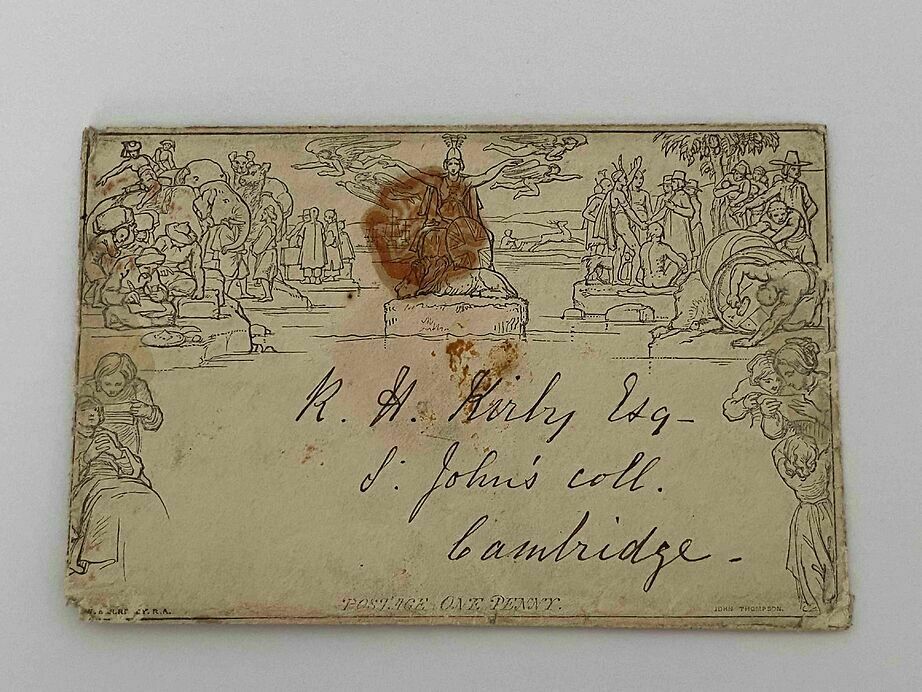 R. H. Kirby Esq-
S: John's coll.
Cambridge-
POSTAGE ONE PENNY.
JOHN THOMPSON.